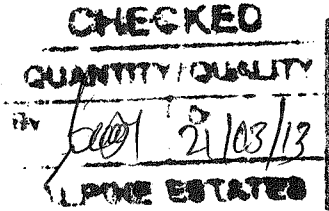 CHECKED
QUANTITY/QUALITY
By 21/03/13
ALPINE ESTATES